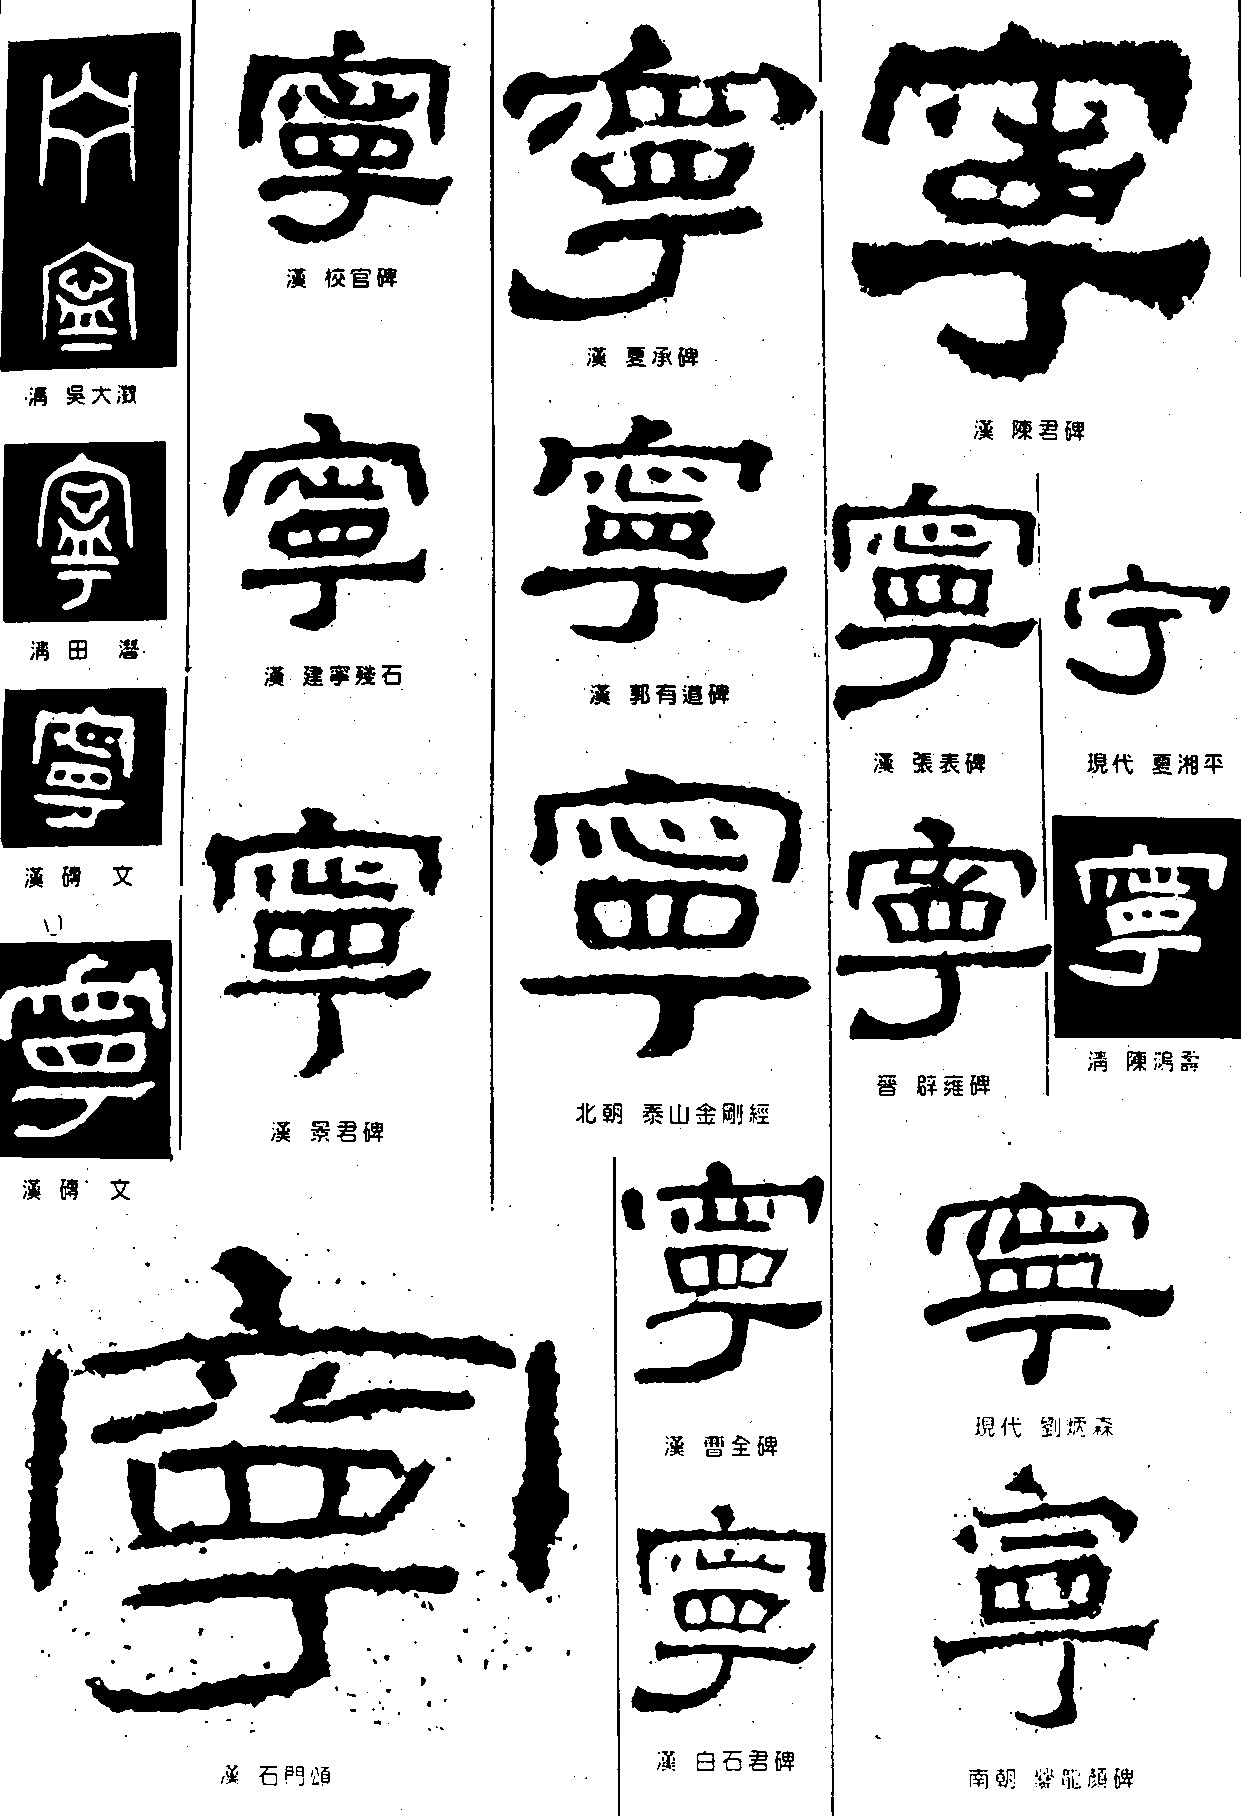 寧
漢 校官碑
寧
漢 夏承碑
寧
漢 陳君碑
清 吳大澂
寧
漢 建寧殘石
寧
漢 郭有道碑
寧
漢 張表碑
宁
現代 夏湘平
寧
清 田 潛
寧
漢 磚 文
寧
漢 景君碑
寧
北朝 泰山金剛經
寧
晉 辟雍碑
寧
清 陳鴻壽
寧
漢 磚 文
寧
漢 石門頌
寧
漢 曹全碑
寧
現代 劉炳森
寧
漢 白石君碑
寧
南朝 爨龍顏碑